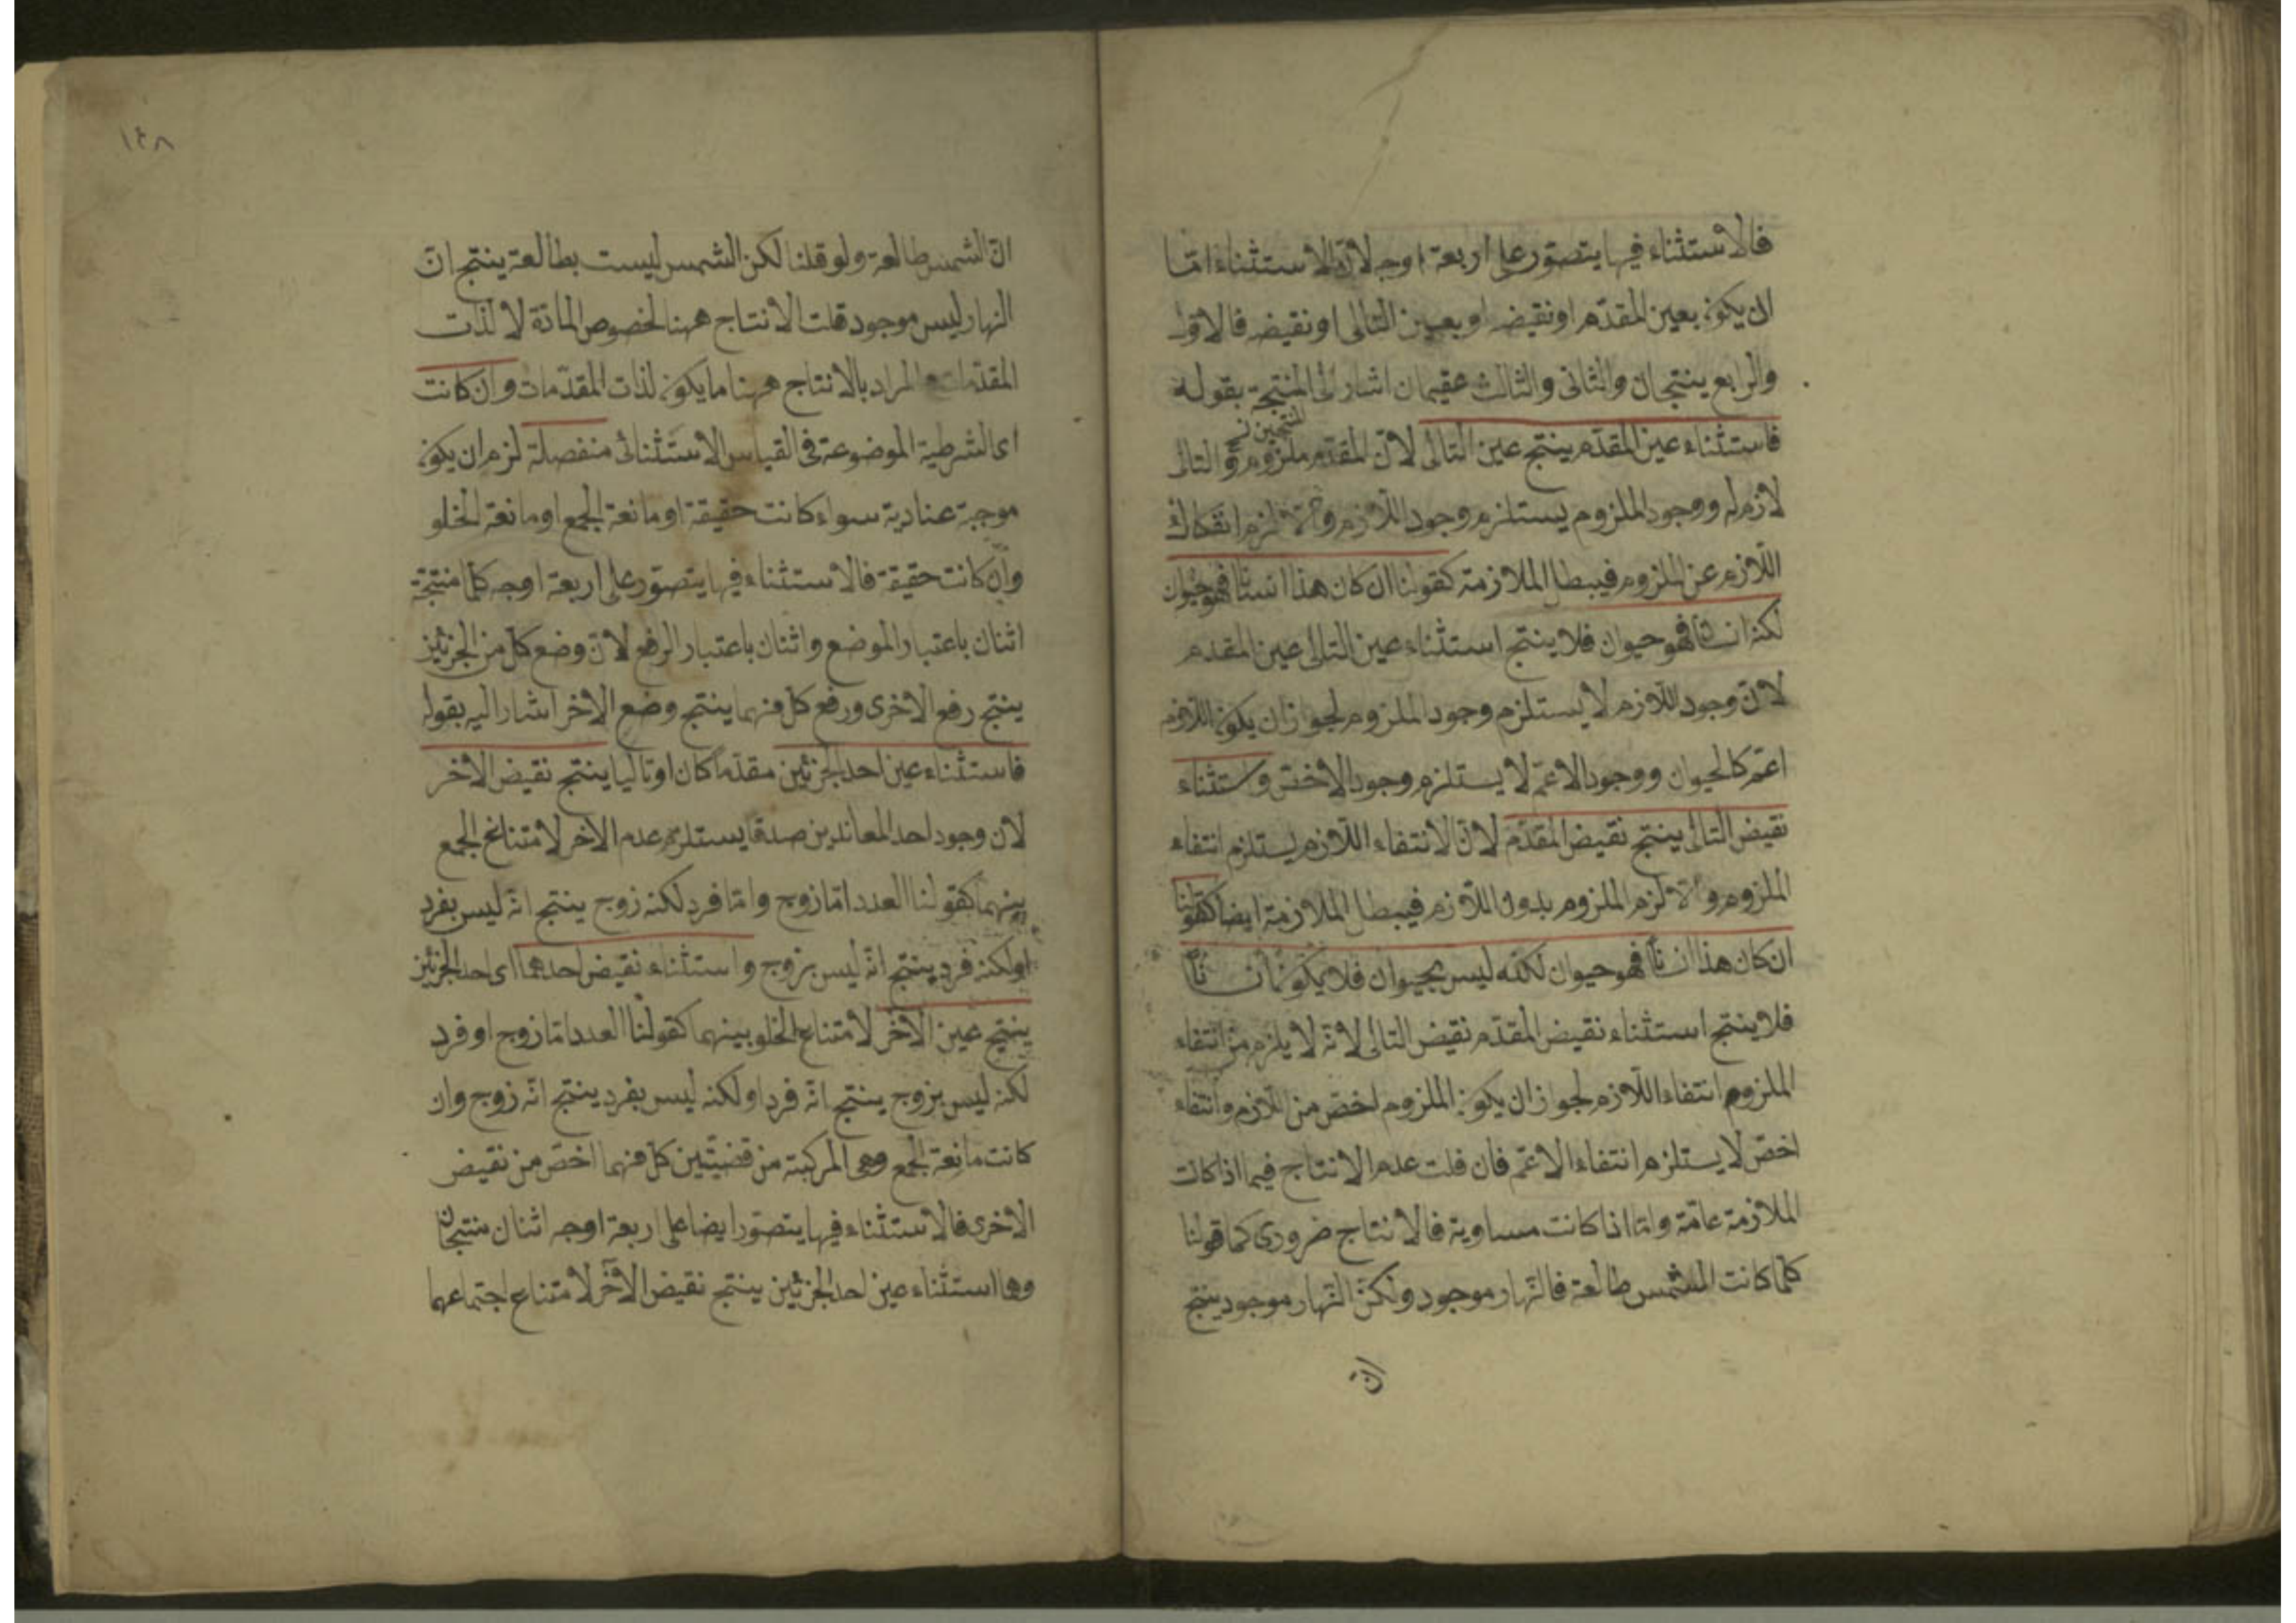 فالاستثناء فيها يتصوّر على اربعة اوجه لانّ الاستثناء امّا
ان يكون بعين المقدّم او نقيضه او بعين التالى او نقيضه فالاوّل
والرابع ينتجان والثانى والثالث عقيمان اشار الى المنتجة بقوله
المنتجين
فاستثناء عين المقدّم ينتج عين التالى لانّ المقدّم ملزوم والتالى
لازم له ووجود الملزوم يستلزم وجود اللّازم والّا لزم انفكاك
اللّازم عن الملزوم فيبطل الملازمة كقولنا ان كان هذا انسانا فهو حيوان
لكنه انسان فهو حيوان فلا ينتج استثناء عين التالى عين المقدم
لانّ وجود اللّازم لا يستلزم وجود الملزوم لجواز ان يكون اللّازم
اعمّ كالحيوان ووجود الاعمّ لا يستلزم وجود الاخصّ واستثناء
نقيض التالى ينتج نقيض المقدّم لانّ الانتفاء اللّازم يستلزم انتفاء
الملزوم والّا لزم الملزوم بدون اللّازم فيبطل الملازمة ايضا كقولنا
ان كان هذا انسانا فهو حيوان لكنّه ليس بحيوان فلا يكون انسانا
فلا ينتج استثناء نقيض المقدّم نقيض التالى لانّه لا يلزم من انتفاء
الملزوم انتفاء اللّازم لجواز ان يكون الملزوم اخصّ من اللّازم وانتفاء
اخصّ لا يستلزم انتفاء الاعمّ فان قلت عدم الانتاج فيما اذا كانت
الملازمة عامّة وامّا اذا كانت مساوية فالانتاج ضرورى كما قولنا
كلّما كانت الشمس طالعة فالنّهار موجود ولكنّ النّهار موجود ينتج
انّ
١٤٨
انّ الشمس طالعة ولو قلنا لكن الشمس ليست بطالعة ينتج انّ
النهار ليس موجود قلت الانتاج ههنا لخصوص المادّة لا لذات
المقدّمات المراد بالانتاج ههنا ما يكون لذات المقدّمات وان كانت
اى الشرطية الموضوعة فى القياس الاستثنائى منفصلة لزم ان يكون
موجبة عنادية سواء كانت حقيقة او مانعة الجمع او مانعة الخلو
وان كانت حقيقة فالاستثناء فيها يتصوّر على اربعة اوجه كلّها منتجة
اثنان باعتبار الموضع واثنان باعتبار الرفع لانّ وضع كلّ من الجزئين
ينتج رفع الاخرى ورفع كلّ منهما ينتج وضع الاخر اشار اليه بقوله
فاستثناء عين احد الجزئين مقدّما كان او تاليا ينتج نقيض الاخر
لان وجود احد المعاندين صدقا يستلزم عدم الاخر لامتناع الجمع
بينهما كقولنا العدد امّا زوج وامّا فرد لكنه زوج ينتج انّه ليس بفرد
او لكنه فرد ينتج انّه ليس بزوج واستثناء نقيض احدهما اى احد الجزئين
ينتج عين الاخر لامتناع الخلو بينهما كقولنا العدد امّا زوج او فرد
لكنه ليس بزوج ينتج انّه فرد او لكنه ليس بفرد ينتج انّه زوج وان
كانت مانعة الجمع وهى المركبة من قضيتين كلّ منهما اخصّ من نقيض
الاخرى فالاستثناء فيها يتصوّر ايضا على اربعة اوجه اثنان منتجان
وهما استثناء عين احد الجزئين ينتج نقيض الاخر لامتناع اجتماعهما